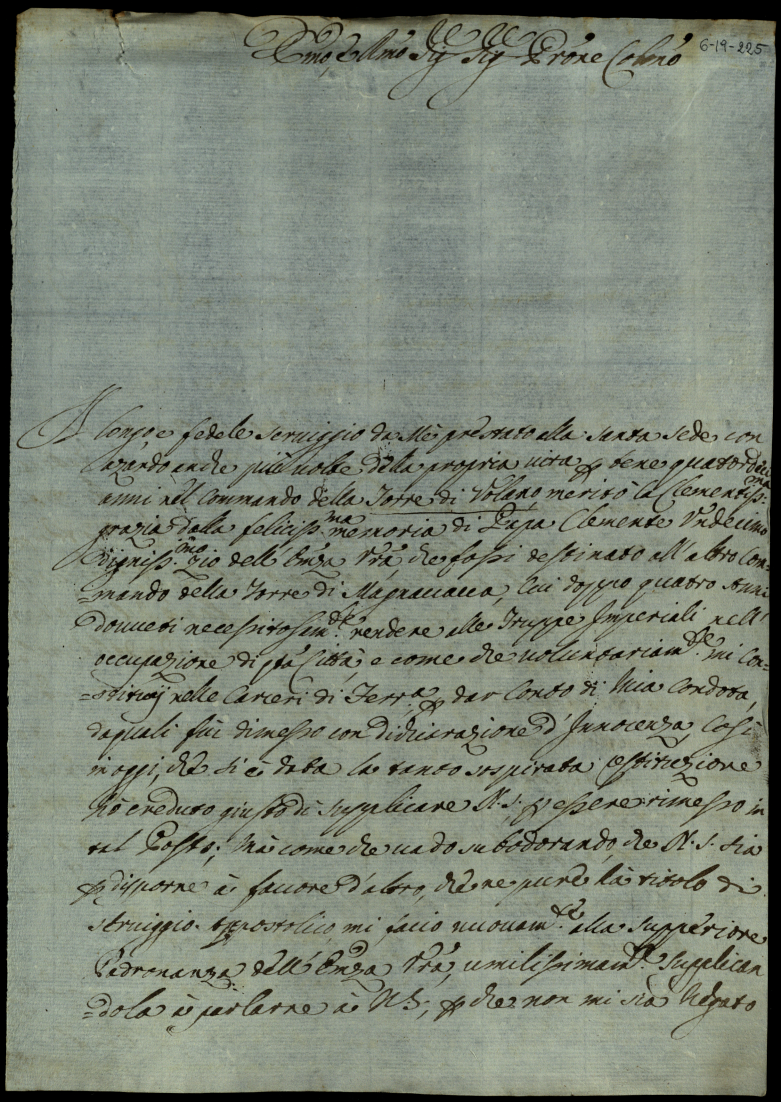 6-19-225
Emo e Rmo Sig.r Sig.r Prone Colmo
Il longo e fedele seruiggio da Mè prestato alla Santa Sede con
azardo anche più uolte della propria uita p bene quatordici
anni nell Commando della Torre di Volano meritò la Clementiss.ma
grazia dalla feliciss.ma memoria di Papa Clemente Vndecimo
digniss.mo zio dell' Emza Vrã, che fossi destinato all' altro Com=
=mando della Torre di Magnauacca, Cui doppo quatro Anni
douueti necessitosam.te rendere alle Truppe Imperiali nell'
occupazione di q̃ta Città, e come che uoluntariam.te mi Con=
=stituij nelle Carceri di Ferra p dar Conto di Mia Condota,
daquali fui dimesso con dichiarazione d' Innocenza, Cosi
in oggi, che si è data la tanto sospirata restituzione
hò creduto giusto di supplicare N. S. p essere rimesso in
tal Posto; Mà come che uado subodorando, che N. S. sia
p disporne à fauore d' altro, che ne pure hà titolo di
seruiggio Appostolico, mi facio nuouam.te alla Supperiore
Padronanza dell' Emza Vrã, umilissimam.te Supplican
=dola à parlarne à N. S., p che non mi sia Negato